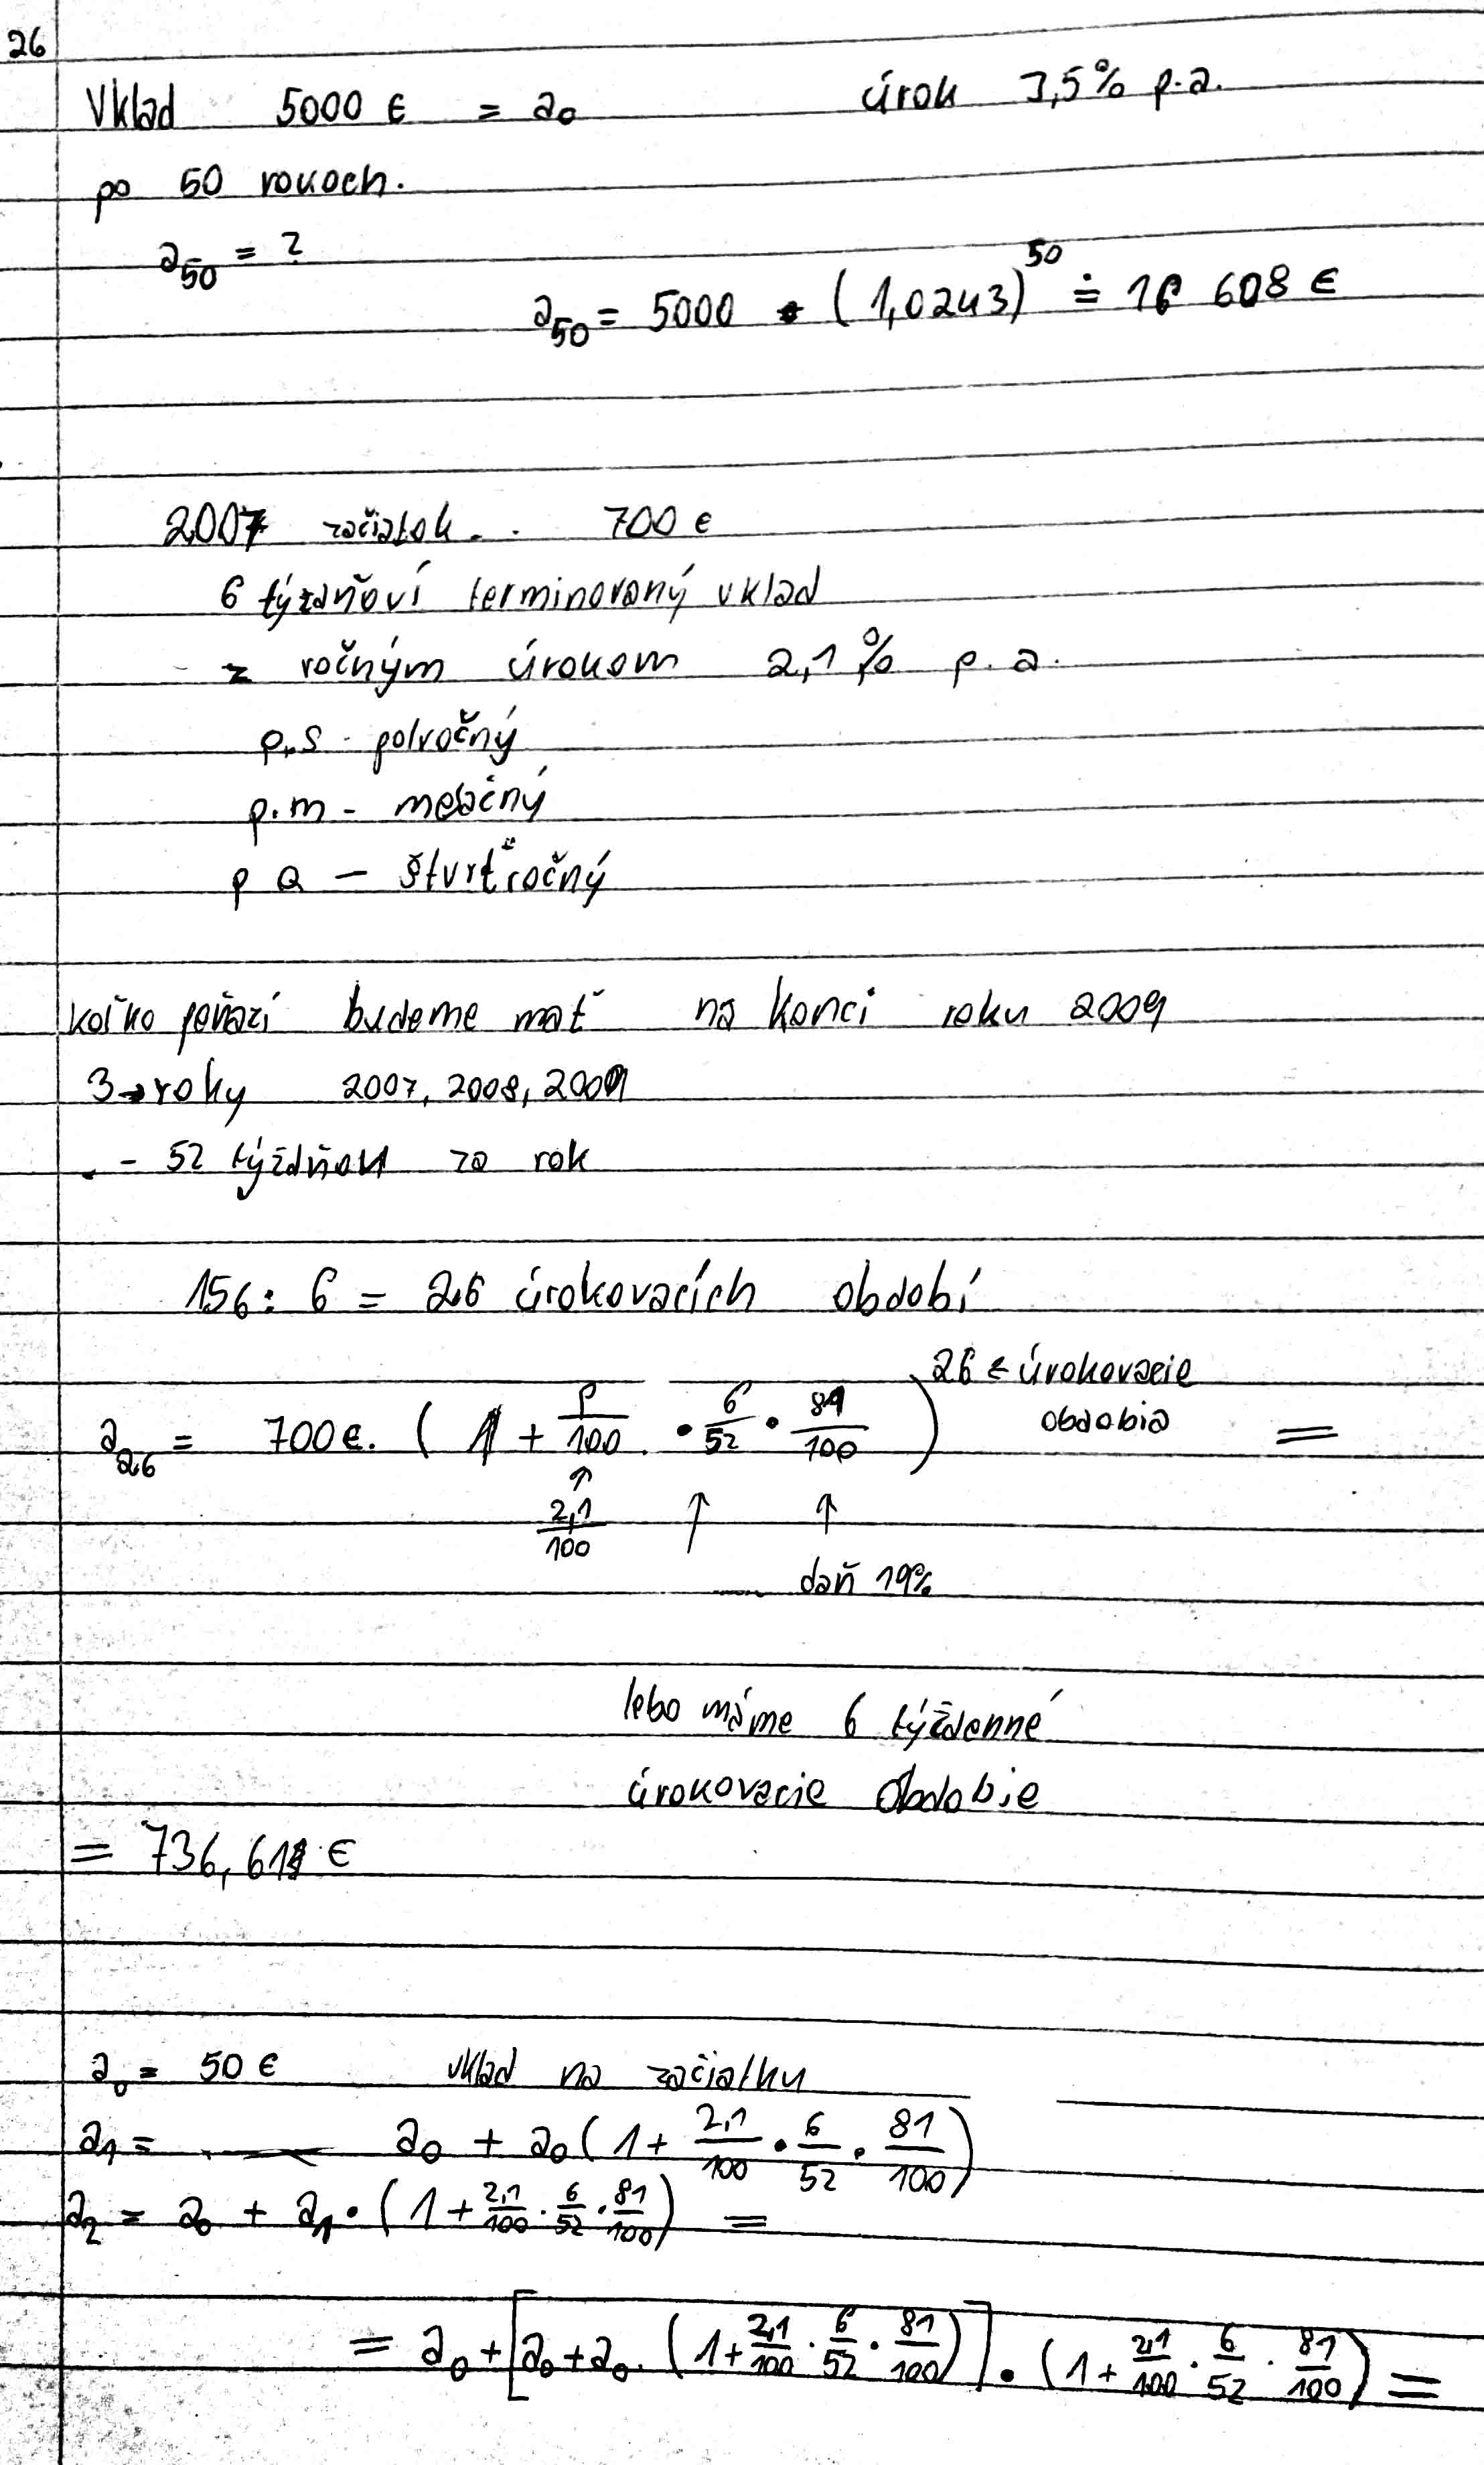 26
Vklad 5000 € = a₀ úrok 3,5% p.a.
po 50 rokoch.
a₅₀ = ?
a₅₀ = 5000 • (1,0243)⁵⁰ ≐ 16 608 €
2007 začiatok.. 700 €
6 týždňoví terminovaný vklad
z ročným úrokom 2,1% p.a.
p.s - polročný
p.m - mesačný
p Q - štvrťročný
koľko peňazí budeme mať na konci roku 2009
3→roky 2007, 2008, 2009
- 52 týždňou za rok
156 : 6 = 26 úrokovacích období
a₂₆ = 700€. (1 + p/100 • 6/52 • 81/100)²⁶ ← úrokovacie obdobia =
↑ ↑ ↑
2,1/100
daň 19%
lebo máme 6 týždenné
úrokovacie obdobie
= 736,618 €
a₀ = 50 € vklad na začiatku
a₁ = a₀ + a₀(1 + 2,1/100 • 6/52 • 81/100)
a₂ = a₀ + a₁ • (1 + 2,1/100 · 6/52 • 81/100) =
= a₀ + [a₀ + a₀. (1 + 2,1/100 · 6/52 • 81/100)] • (1 + 2,1/100 · 6/52 · 81/100) =